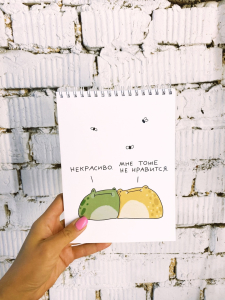 НЕКРАСИВО.
МНЕ ТОЖЕ
НЕ НРАВИТСЯ.